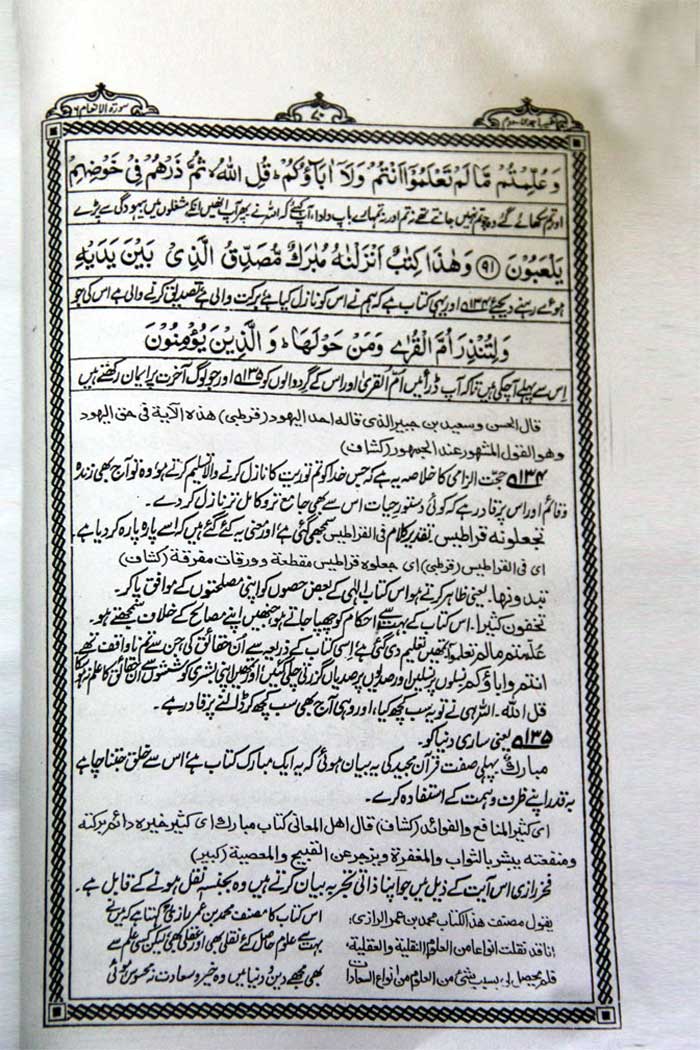 سورة الانعام ٦
وَعُلِّمْتُم مَّا لَمْ تَعْلَمُوْٓا اَنْتُمْ وَلَآ اٰبَآؤُكُمْ ؕ قُلِ اللّٰهُ ۙ ثُمَّ ذَرْهُمْ فِیْ خَوْضِهِمْ
اور تم سکھائے گئے وہ جو تم نہیں جانتے تھے نہ تم اور نہ تمہارے باپ دادا، آپ کہئے کہ اللہ نے پھر آپ انھیں انکے مشغلوں میں بیہودگی سے پڑے
یَلْعَبُوْنَ ﴿٩١﴾ وَهٰذَا كِتٰبٌ اَنْزَلْنٰهُ مُبٰرَكٌ مُّصَدِّقُ الَّذِیْ بَیْنَ یَدَیْهِ
ہوئے رہنے دیجئے ١٣٤ اور یہی کتاب ہے کہ ہم نے اس کو نازل کیا ہے برکت والی ہے تصدیق کرنے والی ہے اس کی جو
وَلِتُنْذِرَ اُمَّ الْقُرٰی وَمَنْ حَوْلَهَا ؕ وَالَّذِیْنَ یُؤْمِنُوْنَ
اس سے پہلے آچکی ہیں تاکہ آپ ڈرائیں اُمّ القریٰ اور اس کے گرد والوں کو ١٣٥ اور جو لوگ آخرت پر ایمان رکھتے ہیں
قال الحسن وسعید بن جبیر الذی قاله احد الیهود (قرطبی) هذه الآیة فی حق الیهود
وهو القول المشهور عند الجمهور (کشاف)
١٣٤ حجت الزامی کا خلاصہ یہ ہے کہ جس خدا کو تم توریت کا نازل کرنے والا تسلیم کرتے ہو، وہ تو آج بھی زندہ
وقائم اور اس پر قادر ہے کہ کوئی دستور حیات اس سے بھی جامع تر و کامل تر نازل کر دے۔
تجعلونه قراطیس۔ تقدیر کلام فی القراطیس سمجھی گئی ہے اور معنی یہ کئے گئے ہیں کہ اسے پارہ پارہ کر دیا ہے۔
ای فی القراطیس (قرطبی) ای جعلوه قراطیس مقطعة وورقات مفرقة (کشاف)
تبدونها۔ یعنی ظاہر کرتے ہو اس کتاب الٰہی کے بعض حصوں کو اپنی مصلحتوں کے موافق پا کر۔
تخفون کثیرا۔ اس کتاب کے بہت سے احکام کو چھپا جاتے ہو جنھیں اپنے مصالح کے خلاف سمجھتے ہو۔
علمتم مالم تعلموا تمھیں تعلیم دی گئی ہے اسی کتاب کے ذریعہ سے ان حقائق کی جن سے تم ناواقف تھے۔
انتم ولا اٰباؤکم نسلوں پر نسلیں اور صدیوں پر صدیاں گزرتی چلی گئیں اور تمھیں اپنی بشری کوششوں سے ان حقائق کا علم نہ ہو سکا
قل اللہ۔ اللہ ہی نے تو یہ سب کچھ کیا، اور وہی آج بھی سب کچھ کر ڈالنے پر قادر ہے۔
١٣٥ یعنی ساری دنیا کو۔
مبارك پہلی صفت قرآن مجید کی یہ بیان ہوئی کہ یہ ایک مبارک کتاب ہے اس سے خلق جتنا چاہے
بہ قدر اپنے ظرف و ہمت کے استفادہ کرے۔
ای کثیر المنافع والفوائد (کشاف) قال اهل المعانی کتاب مبارك ای کثیر خیره دائم برکته
ومنفعته یبشر بالثواب والمغفرة ویزجر عن القبیح والمعصیة (کبیر)
فخر رازی اس آیت کے ذیل میں جو اپنا ذاتی تجربہ بیان کرتے ہیں وہ بجنسہ نقل ہونے کے قابل ہے۔
یقول مصنف هذا الکتاب محمد بن عمر الرازی: اس کتاب کا مصنف محمد بن عمر رازی کہتا ہے کہ میں نے
انا قد نقلت انواعا من العلوم النقلیة والعقلیة، بہت سے علوم حاصل کئے نقلی بھی اور عقلی بھی لیکن کسی علم سے
فلم یحصل لی بسبب شئ من العلوم من انواع السعادات بھی مجھے دین و دنیا میں وہ خیر و سعادت نہ محسوس ہوئی